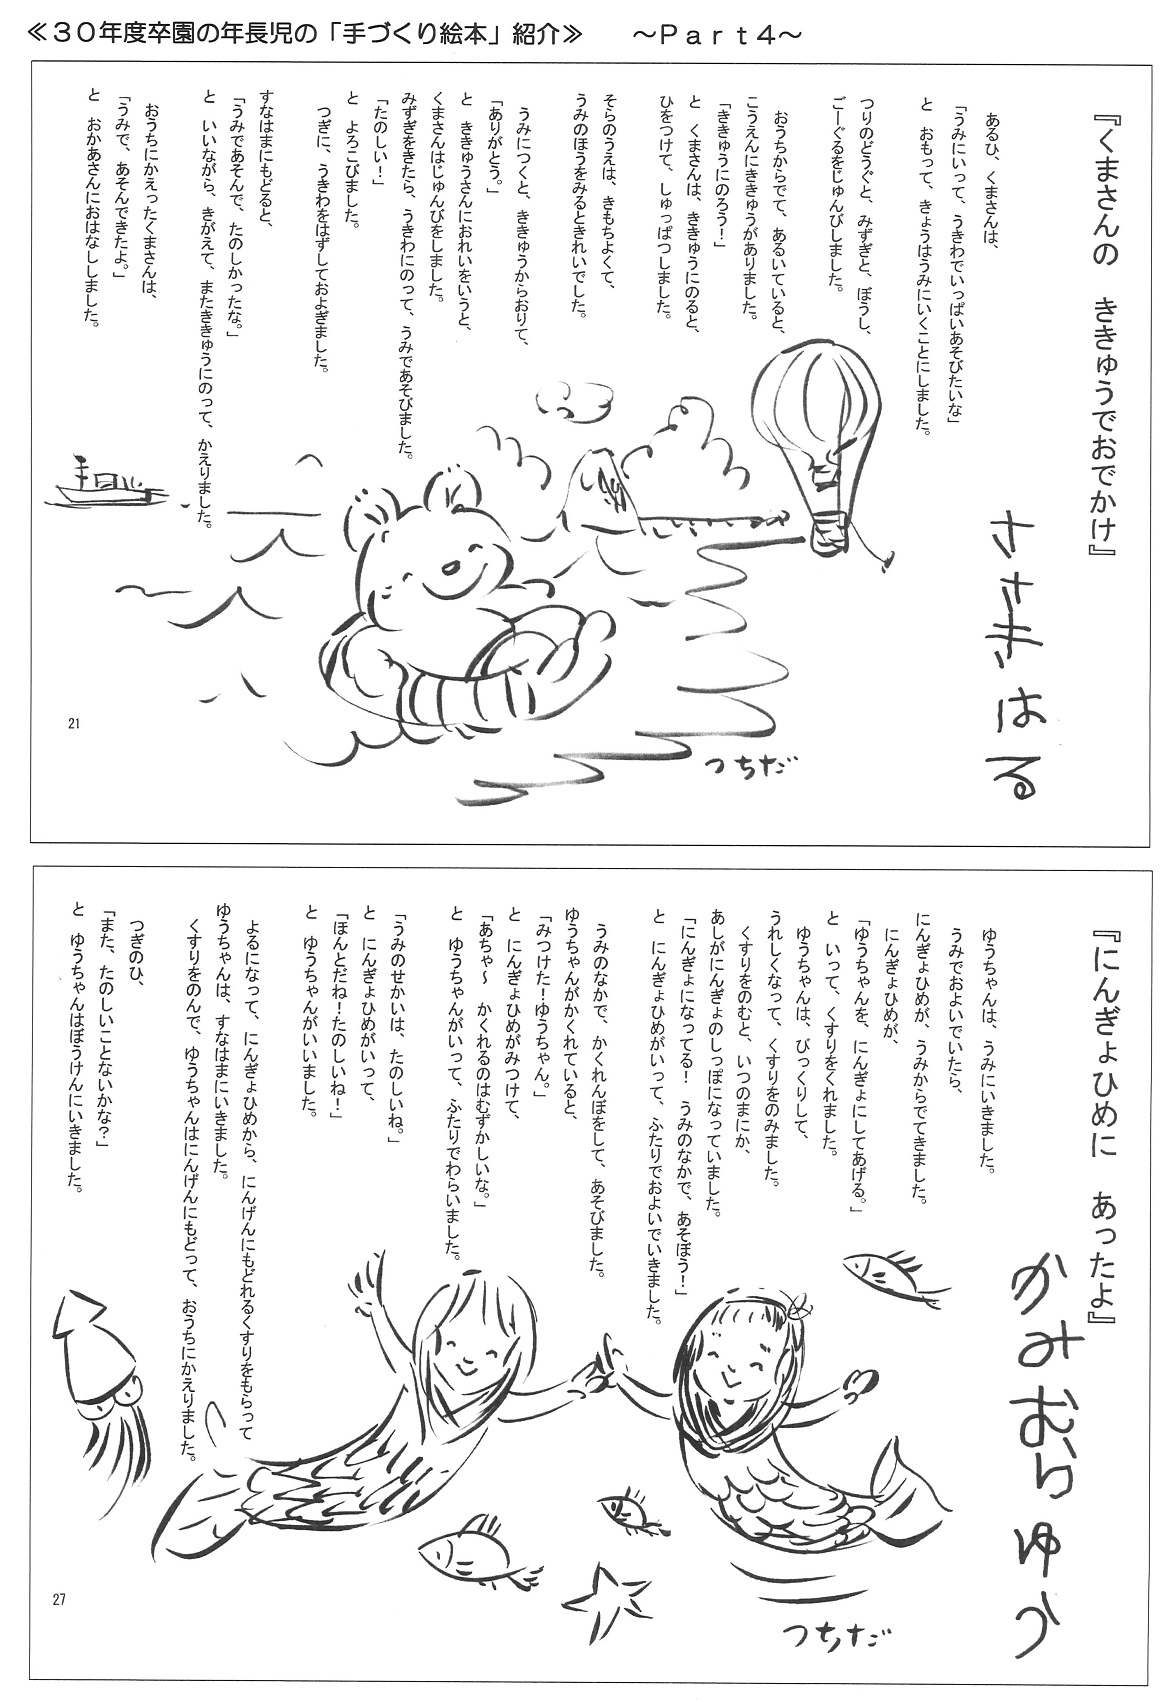 ≪３０年度卒園の年長児の「手づくり絵本」紹介≫　～Ｐａｒｔ４～
『くまさんの　ききゅうでおでかけ』
ささき はる
あるひ、くまさんは、
「うみにいって、うきわでいっぱいあそびたいな」
と　おもって、きょうはうみにいくことにしました。
つりのどうぐと、みずぎと、ぼうし、
ごーぐるをじゅんびしました。
おうちからでて、あるいていると、
こうえんにききゅうがありました。
「ききゅうにのろう！」
と　くまさんは、ききゅうにのると、
ひをつけて、しゅっぱつしました。
そらのうえは、きもちよくて、
うみのほうをみるときれいでした。
うみにつくと、ききゅうからおりて、
「ありがとう。」
と　ききゅうさんにおれいをいうと、
くまさんはじゅんびをしました。
みずぎをきたら、うきわにのって、うみであそびました。
「たのしい！」
と　よろこびました。
つぎに、うきわをはずしておよぎました。
すなはまにもどると、
「うみであそんで、たのしかったな。」
と　いいながら、きがえて、またききゅうにのって、かえりました。
おうちにかえったくまさんは、
「うみで、あそんできたよ。」
と　おかあさんにおはなししました。
つちだ
21
『にんぎょひめに　あったよ』
かみむら ゆか
ゆうちゃんは、うみにいきました。
うみでおよいでいたら、
にんぎょひめが、うみからでてきました。
にんぎょひめが、
「ゆうちゃんを、にんぎょにしてあげる。」
と　いって、くすりをくれました。
ゆうちゃんは、びっくりして、
うれしくなって、くすりをのみました。
くすりをのむと、いつのまにか、
あしがにんぎょのしっぽになっていました。
「にんぎょになってる！　うみのなかで、あそぼう！」
と　にんぎょひめがいって、ふたりでおよいでいきました。
うみのなかで、かくれんぼをして、あそびました。
ゆうちゃんがかくれていると、
「みつけた！ゆうちゃん。」
と　にんぎょひめがみつけて、
「あちゃ～　かくれるのはむずかしいな。」
と　ゆうちゃんがいって、ふたりでわらいました。
「うみのせかいは、たのしいね。」
と　にんぎょひめがいって、
「ほんとだね！たのしいね！」
と　ゆうちゃんがいいました。
よるになって、にんぎょひめから、にんげんにもどれるくすりをもらって
ゆうちゃんは、すなはまにいきました。
くすりをのんで、ゆうちゃんはにんげんにもどって、おうちにかえりました。
つぎのひ、
「また、たのしいことないかな？」
と　ゆうちゃんはぼうけんにいきました。
つちだ
27